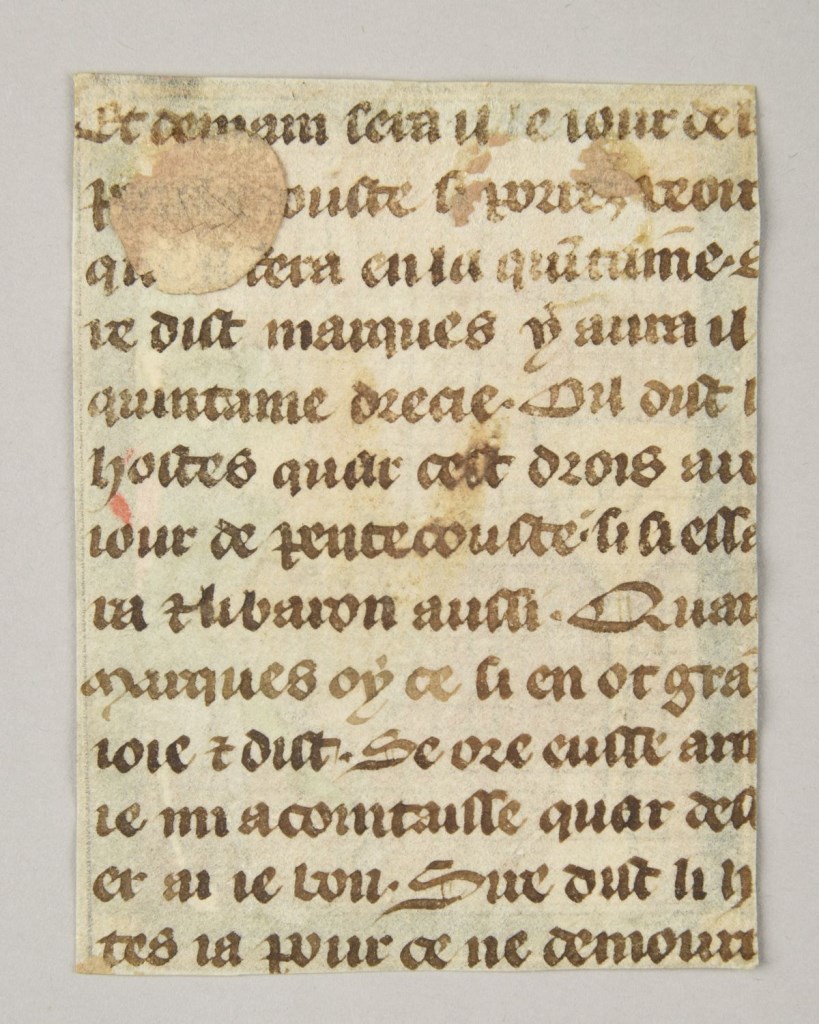 Et demain sera il le iour de l
p ouste si porres veoir
qui sera en la quĩtaine. S
ire dist marques ẏ aura il
quintaine drecie. Oil dist l
hostes quar cest drois au
iour de pentecouste. si si essa
ia ⁊ li baron aussi. Quar
Marques oẏ ce si en ot gra
ioie ⁊ dist. Se ore eusse arm
ie mi acointaisse quar dest
er ai ie bon. Sire dist li h
tes ia pour ce ne demourr